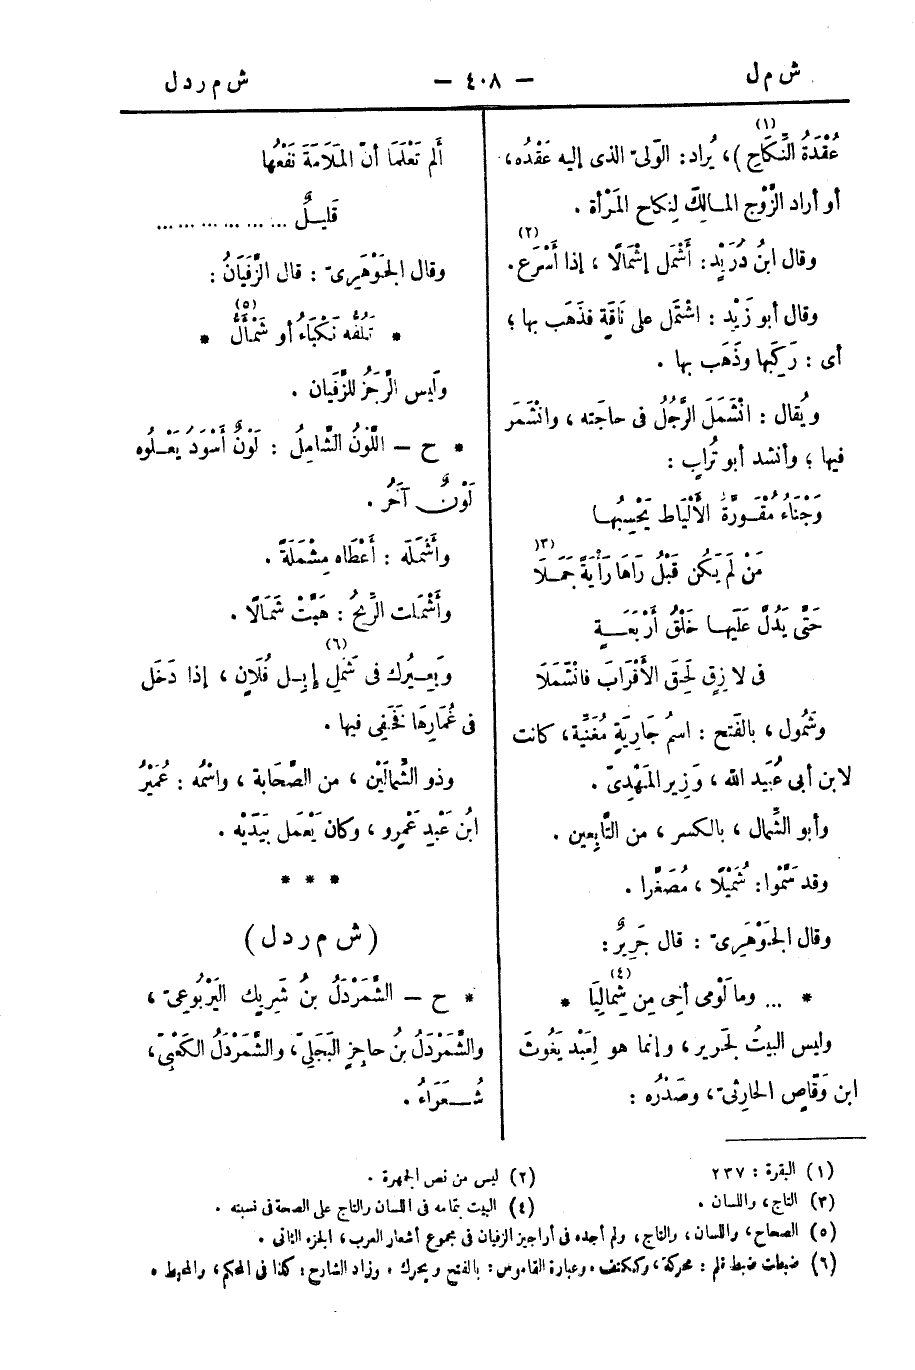 ش م ل
— ٤٠٨ —
ش م ر د ل
عُقْدَةُ النِّكَاحِ (١))، يُراد: الوَلِىّ الذى إليه عَقْدُه،
أو أراد الزَّوْج المـالِكَ لِنكاح المَرْأة .
وقال ابنُ دُرَيْدٍ: أَشْمَل إشْمَالًا ، إذا أَسْرَع (٢).
وقال أبو زَيْدٍ : اشْتَمل على نَاقَةٍ فذَهَب بها ؛
أى : رَكِبَها وذَهَب بها .
ويُقال : انْشَمَلَ الرَّجُلُ فى حاجَته ، وانْشَمَر
فيها ؛ وأنشد أبو تُراب :
وَجْنَاءُ مُقْوَرَّةُ الأَلْيَاطِ يَحْسِبُهـا
مَنْ لَمْ يَكُن قَبْلُ رَاهَا رَأْيَةً جَمَـلَا (٣)
حَتَّى يَدُلَّ عَلَيهـا خَلْقُ أَرْبَعَـــةٍ
فى لازِقٍ لَحِقَ الأَقْرَابَ فانْشَمَلَا
وشَمُول ، بالفَتح : اسمُ جَارِيَةٍ مُغَنِّيَة ، كانت
لابن أبى عُبَيد الله ، وَزِير المَهْدِىّ .
وأبو الشِّمال ، بالكسر ، من التَّابِعين .
وقد سَمَّوْا: شُمَيْلًا ، مُصَغَّرا .
وقال الجَوْهَرِىّ : قال جَرِيرٌ :
* ... وما لَوْمِى أَخِى مِن شِمالِيَا (٤) *
وليس البيتُ لجَرير ، وإنما هو لِعَبْد يَغُوثَ
ابن وَقَّاصٍ الحارِثىّ ، وصَدْرُه :
أَلم تَعْلَمَا أنّ المَلَامَةَ نَفْعُها
قَلِيـلٌ ... ... ... ... ... ...
وقال الجَوْهَرِىّ : قال الزَّفَيَانُ :
* تَلُفّه نَكْبَاءُ أو شَمْأَلُّ (٥) *
ولَيس الرَّجَزُ للزَّفَيان .
* ح — اللَّوْنُ الشَّامِلُ : لَوْنٌ أَسْوَدُ يَعْـلُوه
لَوْنٌ آخَرُ .
وأَشْمَلَه : أَعْطَاه مِشْمَلَةً .
وأَشْمَلت الرِّيحُ : هَبَّتْ شَمَالًا .
وبَعِـيرُك فى شَمْلِ (٦) إبِـل فُلَانٍ ، إذا دَخَل
فى غُمَارِهَا فَخَفِى فيها .
وذو الشِّمالَيْن ، من الصَّحَابة ، واسْمُه : عُمَيْرُ
ابنُ عَبْدِ عَمْرٍو ، وكان يَعْمَل بيَدَيْه .
* * *
( ش م ر د ل )
* ح — الشَّمَرْدَلُ بنُ شَرِيك اليَرْبُوعِىّ ،
والشَّمَرْدَلُ بنُ حاجِزٍ البَجَلِىّ ، والشَّمَرْدَلُ الكَعْبِىّ ،
شُـــعَرَاءُ .
(١) البقرة : ٢٣٧
(٢) ليس من نص الجمهرة .
(٣) التاج ، واللسان .
(٤) البيت بتمامه فى اللسان والتاج على الصحة فى نسبته .
(٥) الصحاح ، واللسان ، والتاج ، ولم أجده فى أراجيز الزفيان فى مجموع أشعار العرب ، الجزء الثانى .
(٦) ضبطت ضبط قلم : محركة ، وككتف . وعبارة القاموس : بالفتح ويحرك . وزاد الشارح : كذا فى المحكم ، والمحيط .